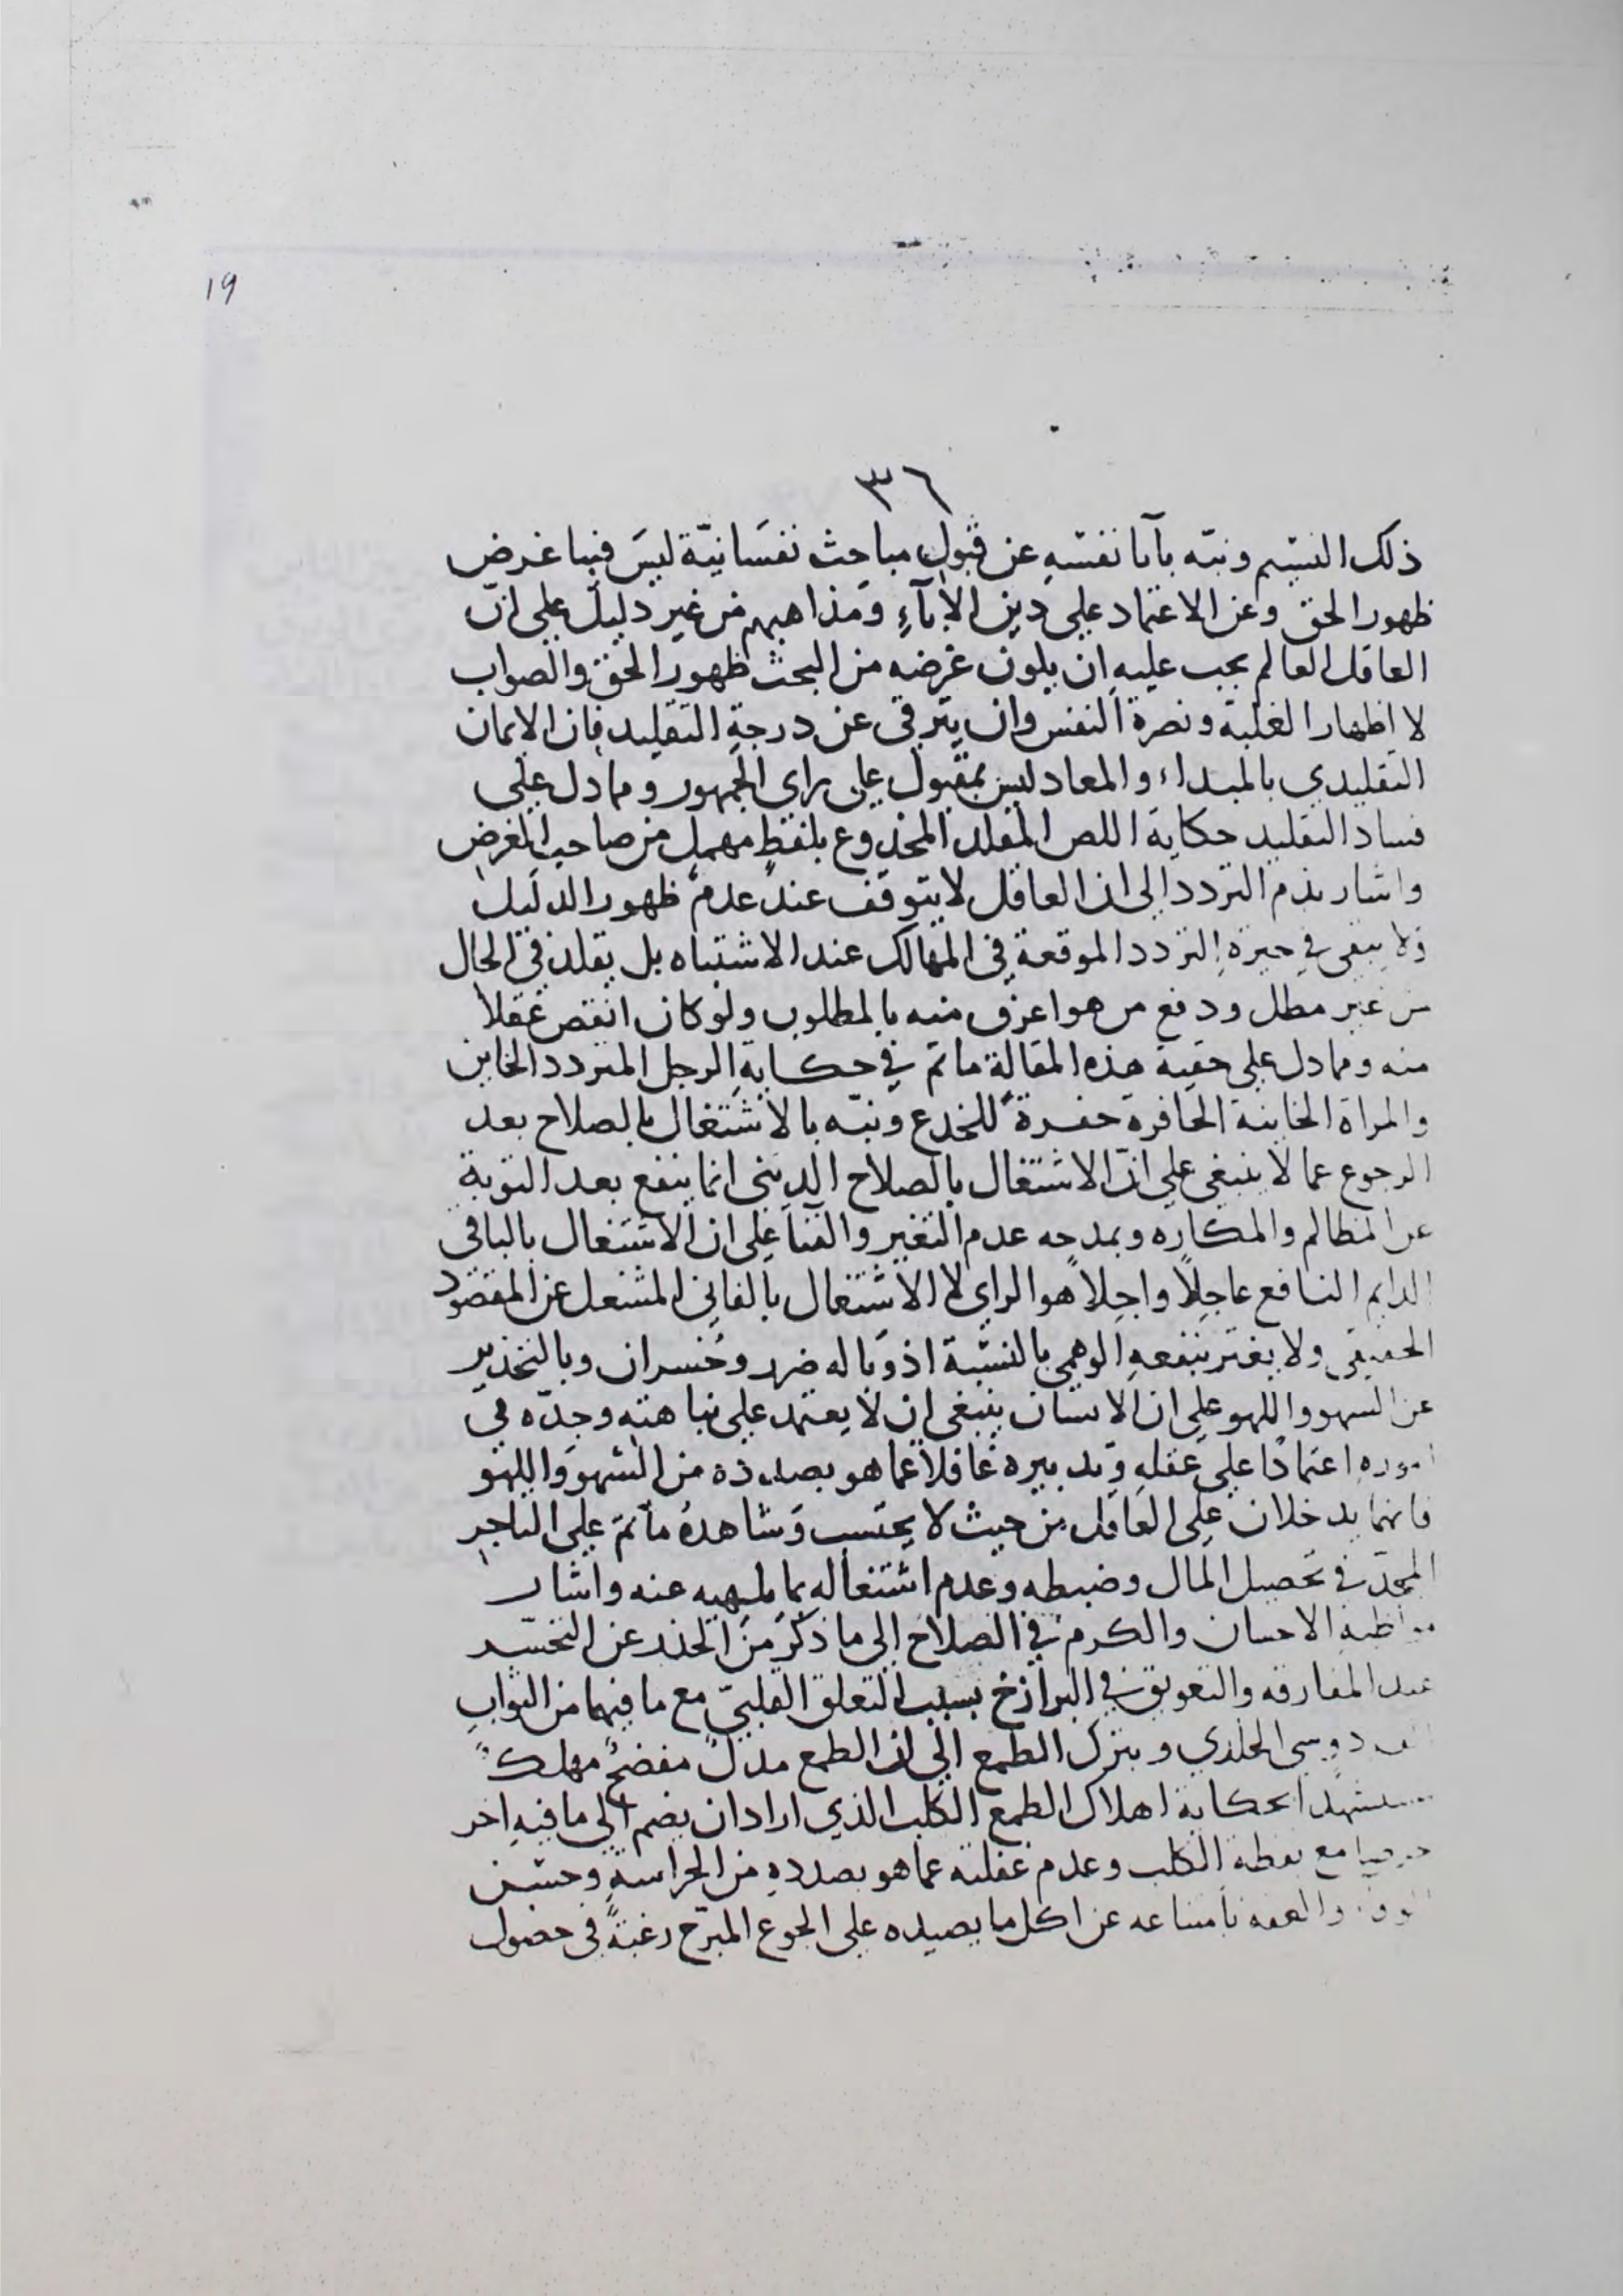 19
٣٦
ذلك النسيم ونبّه بآبا نفسَهِ عن قبولِ مباحث نفسَانيّة ليسَ فيها غرض
ظهور الحق وعن الاعتماد على دين الآبآءِ ومَذاهبهم من غير دليل على انّ
العاقل العالم يجب عليه ان يكون غرضه من البحث ظهور الحق والصواب
لا اظهار الغلبة ونصرة النفس وان يترقى عن درجةِ التقليد فان الايمان
التقليدي بالمبداء والمعاد ليس بمقبول على راى الجمهور ومما دل على
فساد التقليد حكاية اللص المقلد المخدوع بلفظٍ مهمل من صاحب الغرض
واشار بذم التردد الى ان العاقل لا يتوقف عند عدم ظهور الدليل
ولا يبقى في حيرة التردد الموقعة في المهالك عند الاشتباه بل يقلد في الحال
من غير مطل ودفع من هو اعرف منه بالمطلوب ولو كان انقص عقلاً
منه ومما دل على حقية هذه المقالة ما تم في حكايةِ الرجل المتردد الخاين
والمراة الخاينة الحافرة حفرةً للخدع ونبّه بالاشتغال بالصلاح بعد
الرجوع عما لا ينبغي على انّ الاشتغال بالصلاح الديني انما ينفع بعد التوبة
عن المظالم والمكاره وبمدحه عدم التغير والفنا على ان الاشتغال بالباقي
الدايم النافع عاجلاً واجلاً هو الراي لا الاشتغال بالفاني المشتغل عن المقصود
الحقيقي ولا يغتر بنفعهِ الوهمي بالنسبة اذ وباله ضرر وخُسران وبالتحذير
عن السهو واللهو على ان الانسان ينبغي ان لا يعتمد على نباهته وجدّه في
امورهِ اعتمادًا على عقلهِ وتدبيرة غافلاً عما هو بصدده من السهو واللهو
فانهما يدخلان على العاقل من حيث لا يحتسب وشاهدهُ ما تم على التاجر
المجدّ في تحصيل المال وضبطه وعدم اشتغاله بما يلهيه عنه واشار
الاحسان والكرم في الصلاح الى ما ذكر من الحذر عن التحسّد
عند المفارقه والتعويق في البرازخ بسبب التعلق القلبيّ مع ما فيهما من الثواب
الخلدي وبترك الطمع الى ان الطمع مذلٌ مفضحٌ مهلكٌ
بحكاية اهلاك الطمع الكلب الذي اراد ان يضم الى ما فيهِ اخر
مع يقظة الكلب وعدم غفلته عما هو بصددهِ من الحراسةِ وحسن
والعفه بامتناعه عن اكل ما يصيده على الجوع المبرّح رغبةً في حصول